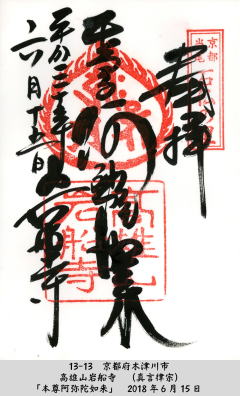 奉拝
本尊 阿弥陀如来
岩船寺
平成三十年
六月十五日
京都
当尾
高雄山
岩船寺
13-13 京都府木津川市
高雄山岩船寺 (真言律宗)
「本尊阿弥陀如来」 2018年6月15日